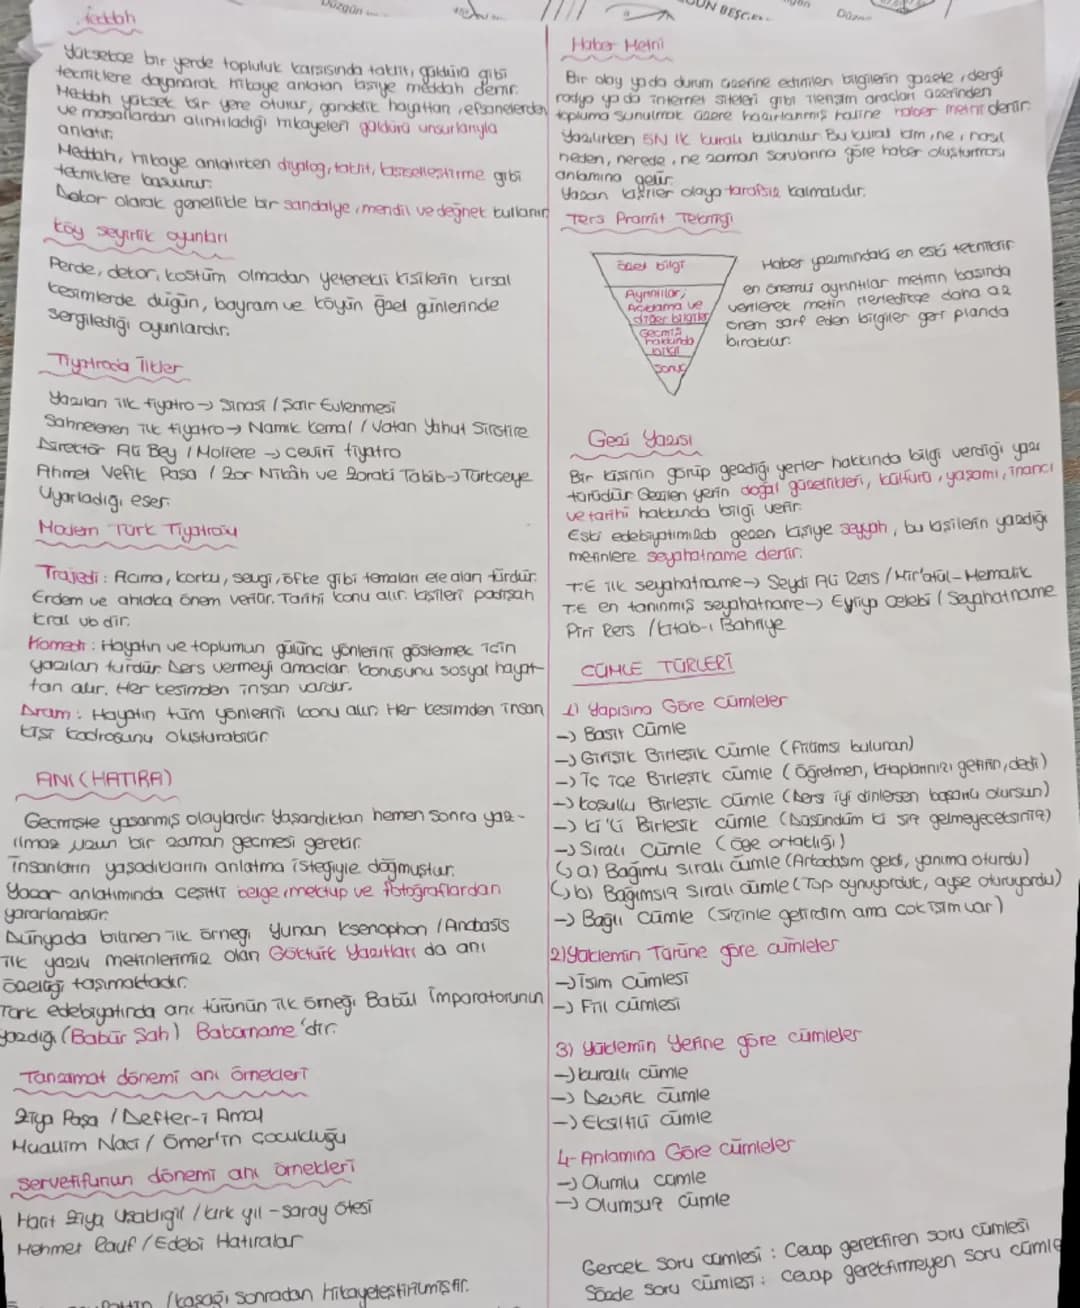 Meddah
Yüksekçe bir yerde topluluk karşısında taklit, güldürü gibi
tekniklere dayanarak hikaye anlatan kişiye meddah denir.
Meddah yüksek bir yere oturur, gündelik hayattan, efsanelerden
ve masallardan alıntıladığı hikayeleri güldürü unsurlarıyla
anlatır.
Meddah, hikaye anlatırken diyalog, taklit, kişiselleştirme gibi
tekniklere başvurur.
Dekor olarak genellikle bir sandalye, mendil ve değnek kullanır
Köy seyirlik oyunları
Perde, dekor, kostüm olmadan yetenekli kişilerin kırsal
kesimlerde düğün, bayram ve köyün özel günlerinde
sergilediği oyunlardır.
Tiyatroda İlkler
Yazılan ilk tiyatro → Şinasi / Şair Evlenmesi
Sahnelenen ilk tiyatro → Namık Kemal / Vatan Yahut Silistire
Direktör Ali Bey / Moliere → çeviri tiyatro
Ahmet Vefik Paşa / Zor Nikâh ve Zoraki Tabib → Türkçeye
Uyarladığı eser.
Modern Türk Tiyatrosu
Trajedi : Acıma, korku, sevgi, öfke gibi temaları ele alan türdür.
Erdem ve ahlaka önem verilir. Tarihi konu alır. kişileri padişah
kral vb dir.
Komedi : Hayatın ve toplumun gülünç yönlerini göstermek için
yazılan türdür. Ders vermeyi amaçlar. konusunu sosyal hayat-
tan alır. Her kesimden insan vardır.
Dram : Hayatın tüm yönlerini konu alır. Her kesimden insan
kişi kadrosunu oluşturabilir
ANI (HATIRA)
Geçmişte yaşanmış olaylardır. Yaşandıktan hemen sonra yaz-
ılmaz uzun bir zaman geçmesi gerekir.
İnsanların yaşadıklarını anlatma isteğiyle doğmuştur.
Yazar anlatımında çeşitli belge, mektup ve fotoğraflardan
yararlanabilir.
Dünyada bilinen ilk örneği Yunan Ksenophon / Anabasis
ilk yazılı metinlerimiz olan Göktürk Yazıtları da anı
özelliği taşımaktadır.
Türk edebiyatında anı türünün ilk örneği Babül İmparatorunun
yazdığı (Babür Şah) Babürname'dir.
Tanzimat dönemi anı örnekleri
Ziya Paşa / Defter-i Amal
Muallim Naci / Ömer'in Çocukluğu
Servetifunun dönemi anı örnekleri
Halit Ziya Uşaklıgil / kırk yıl - saray ötesi
Mehmet Rauf / Edebi Hatıralar
/ kaşağı sonradan hikayeleştirilmiştir.
Haber Metni
Bir olay ya da durum üzerine edinilen bilgilerin gazete, dergi
radyo ya da internet siteleri gibi iletişim araçları üzerinden
topluma sunulmak üzere hazırlanmış haline haber metni denir.
Yazılırken 5N 1K kuralı kullanılır. Bu kural kim, ne, nasıl
neden, nerede, ne zaman sorularına göre haber oluşturması
anlamına gelir.
Yazan kişiler olaya tarafsız kalmalıdır.
Ters Pramit Tekniği
özet bilgi
Ayrıntılar,
Açıklama ve
diğer bilgiler
Geçmiş
hakkında
bilgi
Sonuç
Haber yazımındaki en eski tekniktir
en önemli ayrıntılar metnin başında
verilerek metin ilerledikçe daha az
önem sarf eden bilgiler geri planda
bırakılır.
Gezi Yazısı
Bir kişinin görüp gezdiği yerler hakkında bilgi verdiği yazı
türüdür. Gezilen yerin doğal güzellikleri, kültürü, yaşamı, inancı
ve tarihi hakkında bilgi verir.
Eski edebiyatımızda gezen kişiye seyyah, bu kişilerin yazdığı
metinlere seyahatname denir.
T.E ilk seyahatname → Seydi Ali Reis / Mir'atül-Memalik
T.E en tanınmış seyahatname → Evliya Çelebi / Seyahatname
Piri Reis / Kitab-ı Bahriye
CÜMLE TÜRLERİ
1) Yapısına Göre Cümleler
→ Basit Cümle
→ Girişik Birleşik Cümle (Fiilimsi bulunan)
→ İç içe Birleşik cümle (Öğretmen, kitaplarınızı getirin, dedi)
→ Koşullu Birleşik cümle (Dersi iyi dinlersen başarılı olursun)
→ ki'li Birleşik cümle (Düşündüm ki siz gelmeyeceksiniz)
→ Sıralı Cümle (öge ortaklığı)
↳ a) Bağımlı sıralı cümle (Arkadaşım geldi, yanıma oturdu)
↳ b) Bağımsız sıralı cümle (Top oynuyorduk, ayşe oturuyordu)
→ Bağlı Cümle (Sizinle gelirdim ama çok işim var)
2) Yüklemin Türüne göre cümleler
→ İsim Cümlesi
→ Fiil Cümlesi
3) Yüklemin Yerine göre cümleler
→ kurallı cümle
→ Devrik Cümle
→ Eksiltili Cümle
4- Anlamına Göre Cümleler
→ Olumlu cümle
→ Olumsuz cümle
Gerçek soru cümlesi : Cevap gerektiren soru cümlesi
Sözde soru cümlesi : cevap gerektirmeyen soru cümle